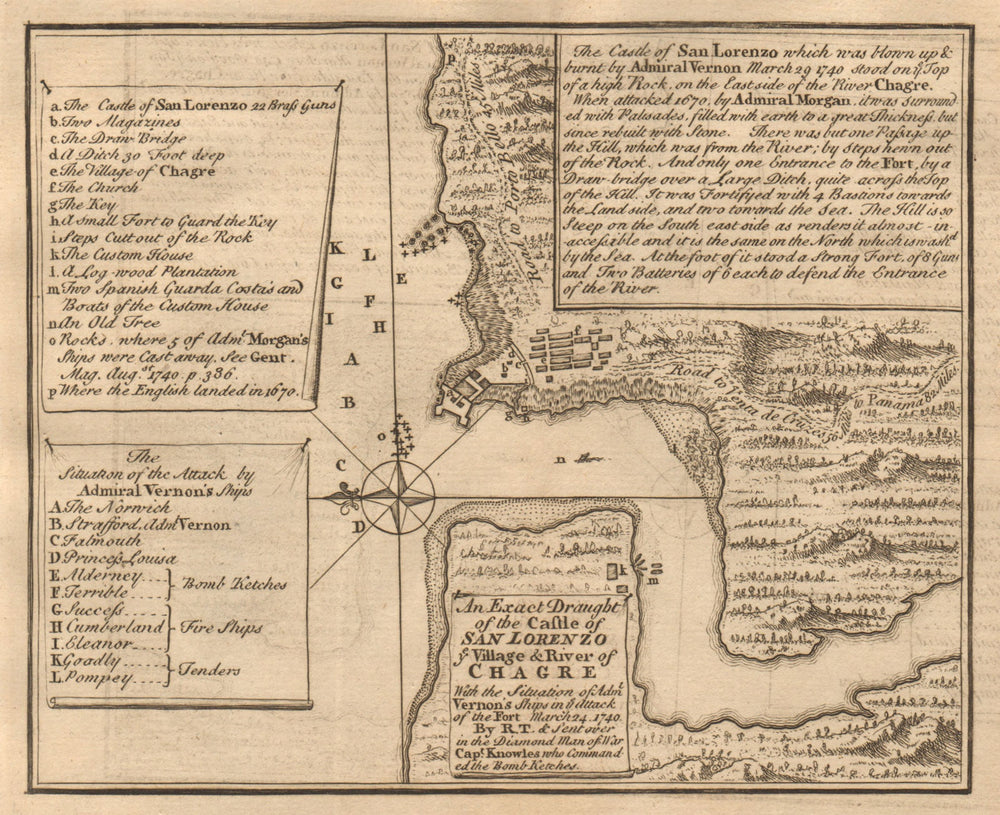 a. The Castle of San Lorenzo 22 Braſs Guns
b. Two Magazines
c. The Draw Bridge
d. A Ditch 30 Foot deep
e. The Village of Chagre
f. The Church
g. The Key
h. A small Fort to Guard the Key
i. Steps Cutt out of the Rock
k. The Custom House
l. A Log-wood Plantation
m. Two Spanish Guarda Costa's and
Boats of the Custom House
n. An Old Tree
o. Rocks, where 5 of Adml. Morgan's
Ships were Cast away, See Gent.
Mag. Augst. 1740. p. 386.
p. Where the English landed in 1670.
The Castle of San Lorenzo which was blown up &
burnt by Admiral Vernon March 29 1740 stood on ye Top
of a high Rock, on the East side of the River Chagre.
When attacked 1670, by Admiral Morgan, it was surround
ed with Palisades, filled with earth to a great Thickneſs, but
since rebuilt with Stone. There was but one Paſsage up
the Hill, which was from the River; by steps hewn out
of the Rock. And only one Entrance to the Fort, by a
Draw-bridge over a Large Ditch, quite acroſs the Top
of the Hill. It was Fortifyed with 4 Bastions towards
the Land side, and two towards the Sea. The Hill is so
Steep on the South east side as renders it almost in-
acceſsible and it is the same on the North which is wash'd
by the Sea. At the foot of it stood a Strong Fort, of 8 Guns
and Two Batteries of 6 each to defend the Entrance
of the River.
p
Road to Porto Bello 45 Miles
K
L
E
G
F
I
H
A
B
C
D
o
n
f
e
d
c
b
a
i
g
h
Road to Venta de Cruzes 50
to Panama 82 Miles.
The
Situation of the Attack by
Admiral Vernon's Ships
A. The Norwich
B. Strafford, Adml. Vernon
C. Falmouth
D. Princeſs Louisa
E. Alderney
F. Terrible
Bomb Ketches
G. Succeſs
H. Cumberland
I. Eleanor
Fire Ships
K. Goadly
L. Pompey
Tenders
k
m
An Exact Draught
of the Caſtle of
SAN LORENZO
ye Village & River of
CHAGRE
With the Situation of Adml.
Vernon's Ships in ye Attack
of the Fort March 24. 1740.
By R.T. & Sent over
in the Diamond Man of War
Capt. Knowles who Command
ed the Bomb Ketches.